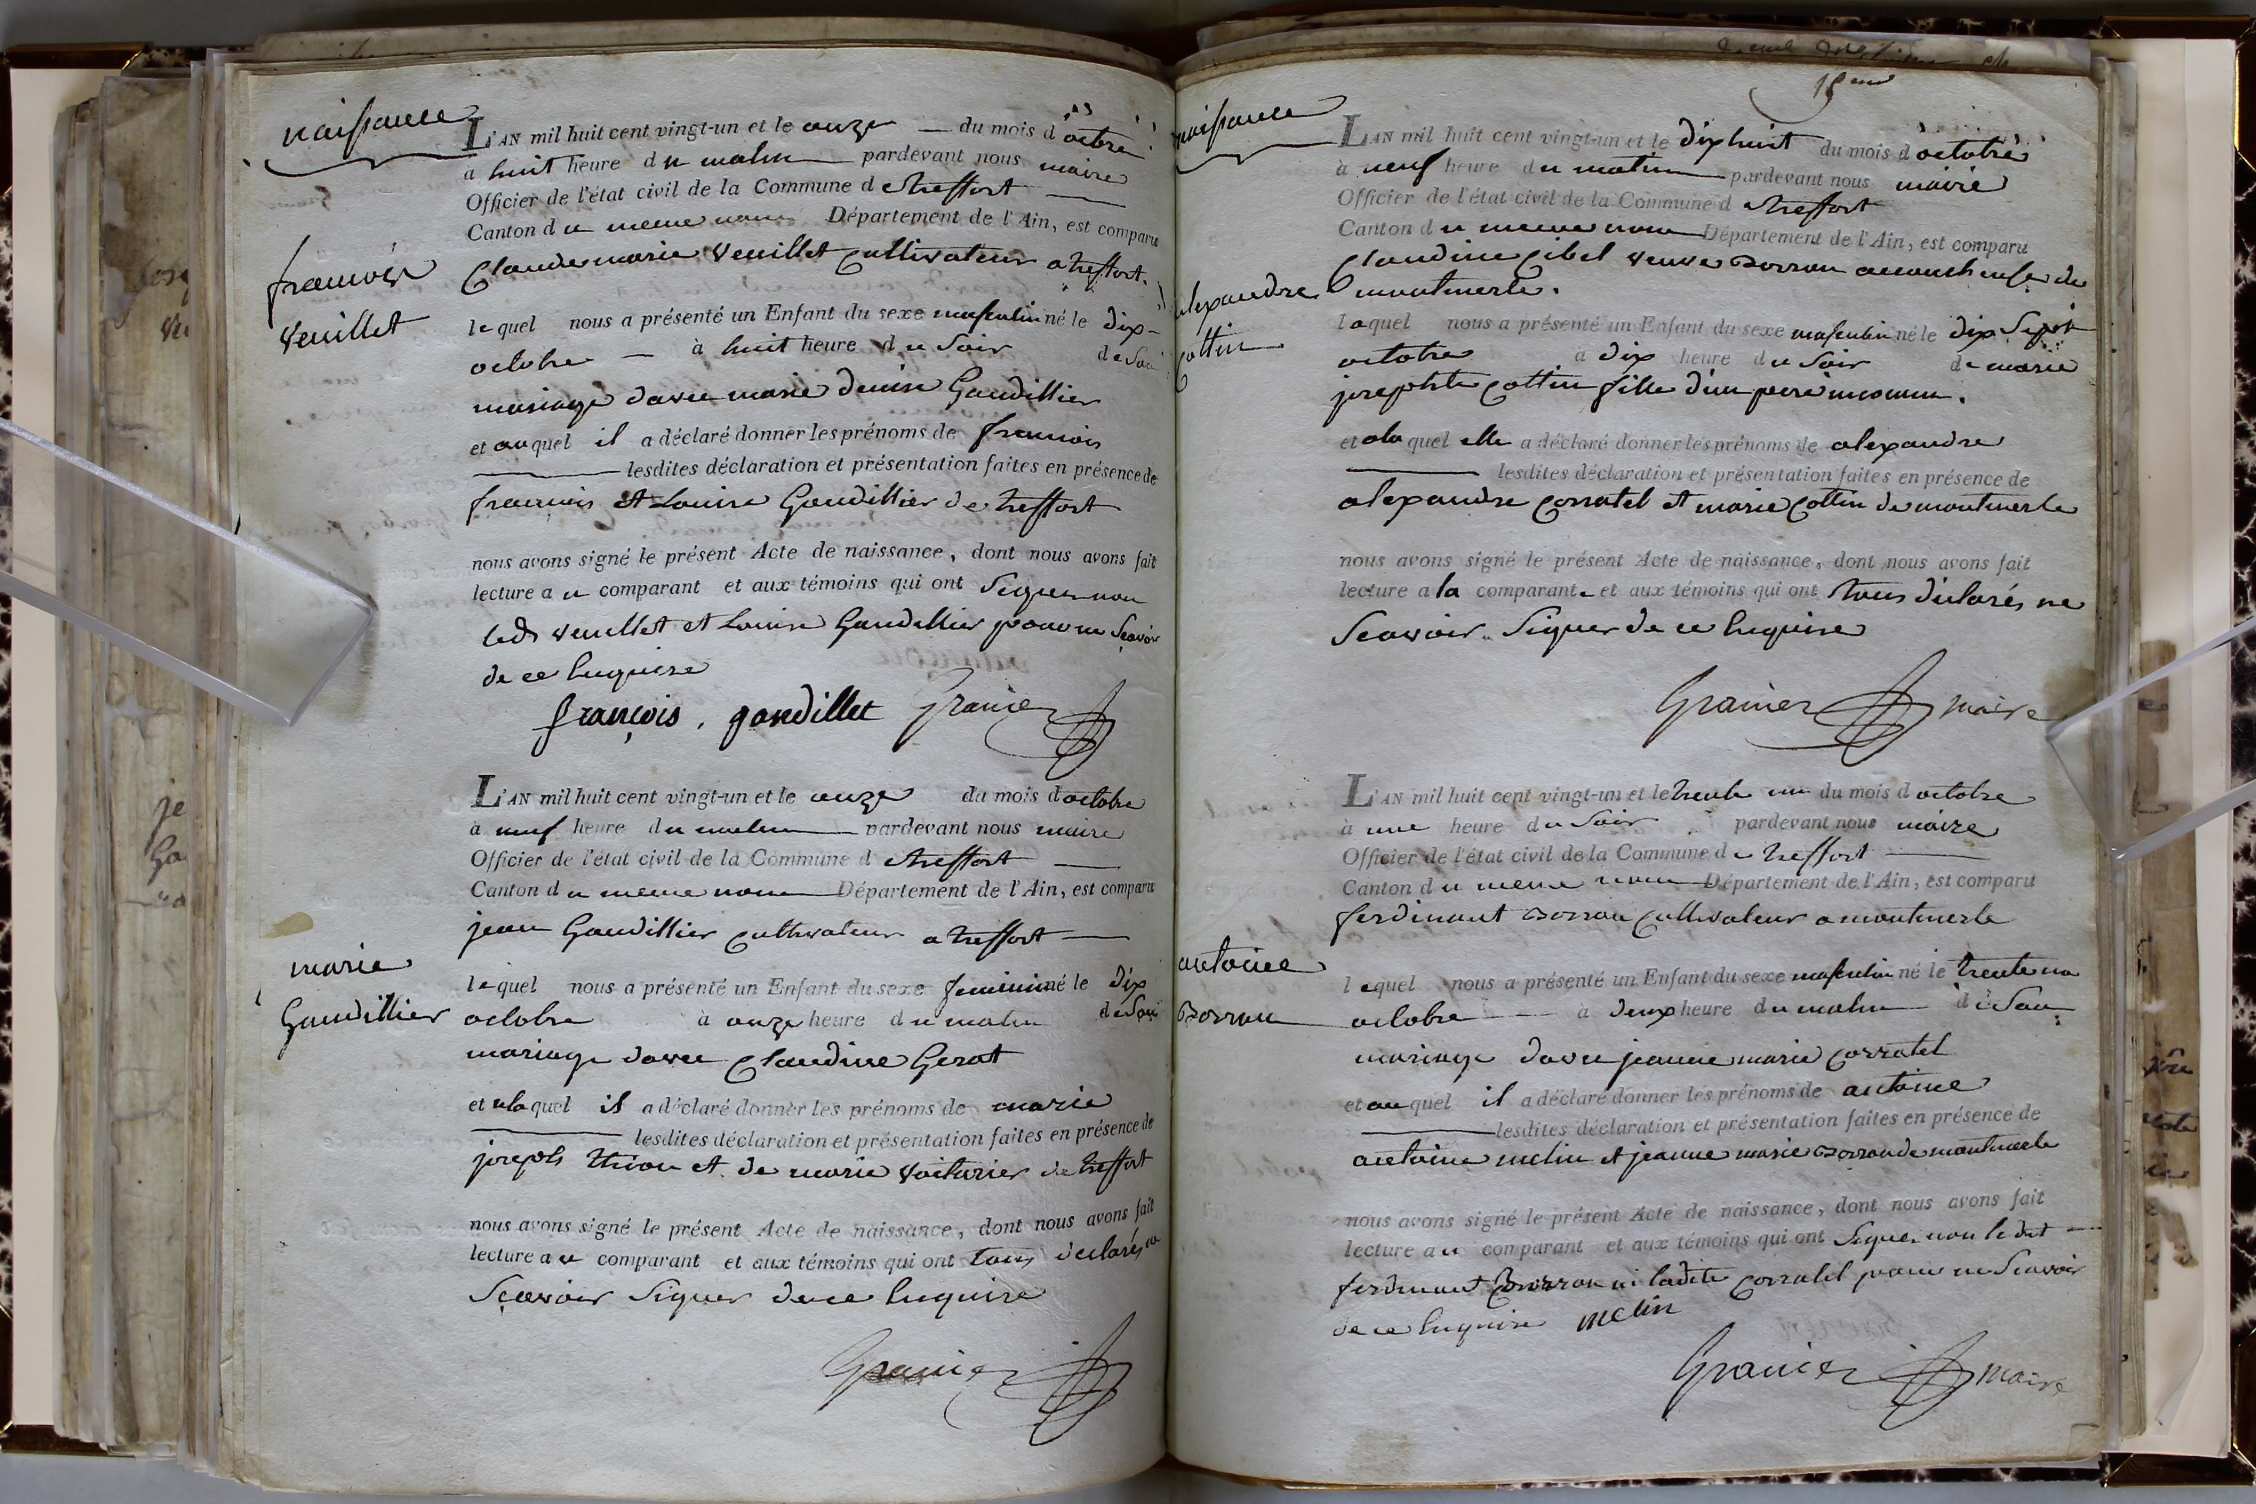 naissance
L'AN mil huit cent vingt-un et le onze du mois d'octobre
à huit heure du matin pardevant nous maire
Officier de l'état civil de la Commune de treffort
Canton du meme nom Département de l'Ain, est comparu
Claude marie Veuillet Cultivateur a treffort.
françois
Veuillet
lequel nous a présenté un Enfant du sexe masculin né le dix
octobre à huit heure du Soir de Son
mariage davec marie denise Gaudillier
et auquel il a déclaré donner les prénoms de francois
lesdites déclaration et présentation faites en présence de
françois et Louise Gaudillier de treffort
nous avons signé le présent Acte de naissance, dont nous avons fait
lecture au comparant et aux témoins qui ont Signer non
led Veuillet et Louise Gaudillier pour ne Scavoir
de ce Enquise
françois . gaudillet Granier
L'AN mil huit cent vingt-un et le onze du mois d octobre
à neuf heure du matin pardevant nous maire
Officier de l'état civil de la Commune de treffort
Canton du meme nom Département de l'Ain, est comparu
jean Gaudillier Cultivateur a treffort
marie
Gaudillier
lequel nous a présenté un Enfant du sexe feminin né le dix
octobre à onze heure du matin de Son
mariage davec Claudine Gerat
et alaquel il a déclaré donner les prénoms de marie
lesdites déclaration et présentation faites en présence de
joseph et de marie Voiturier de treffort
nous avons signé le présent Acte de naissance, dont nous avons fait
lecture au comparant et aux témoins qui ont tous déclarés ne
Scavoir Signer de ce Enquise
Granier
naissance
L'AN mil huit cent vingt-un et le dix huit du mois d'octobre
à neuf heure du matin pardevant nous maire
Officier de l'état civil de la Commune de treffort
Canton du meme nom Département de l'Ain, est comparu
Claudine Veuve Borron accoucheuse de
montmerle.
alexandre
Cottin
laquel nous a présenté un Enfant du sexe masculin né le dix Sept
octobre à dix heure du Soir de marie
josephte Cottin fille d'un pere inconnu.
et alaquel elle a déclaré donner les prénoms de alexandre
lesdites déclaration et présentation faites en présence de
alexandre Corratel et marie Cottin de montmerle
nous avons signé le présent Acte de naissance, dont nous avons fait
lecture a la comparante et aux témoins qui ont tous déclarés ne
Scavoir Signer de ce Enquise
Granier maire
L'AN mil huit cent vingt-un et le trente un du mois d octobre
à une heure du Soir pardevant nous maire
Officier de l'état civil de la Commune de treffort
Canton du meme nom Département de l'Ain, est comparu
ferdinant Borron Cultivateur a montmerle
antoine
Borron
lequel nous a présenté un Enfant du sexe masculin né le trente un
octobre à deux heure du matin de Son
mariage davec jeanne marie Corratel
et auquel il a déclaré donner les prénoms de antoine
lesdites déclaration et présentation faites en présence de
antoine melin et jeanne marie Borron de montmerle
nous avons signé le présent Acte de naissance, dont nous avons fait
lecture au comparant et aux témoins qui ont Signer non le dit
ferdinant Borron ni ladite Corratel pour ne Scavoir
de ce Enquise melin
Granier maire